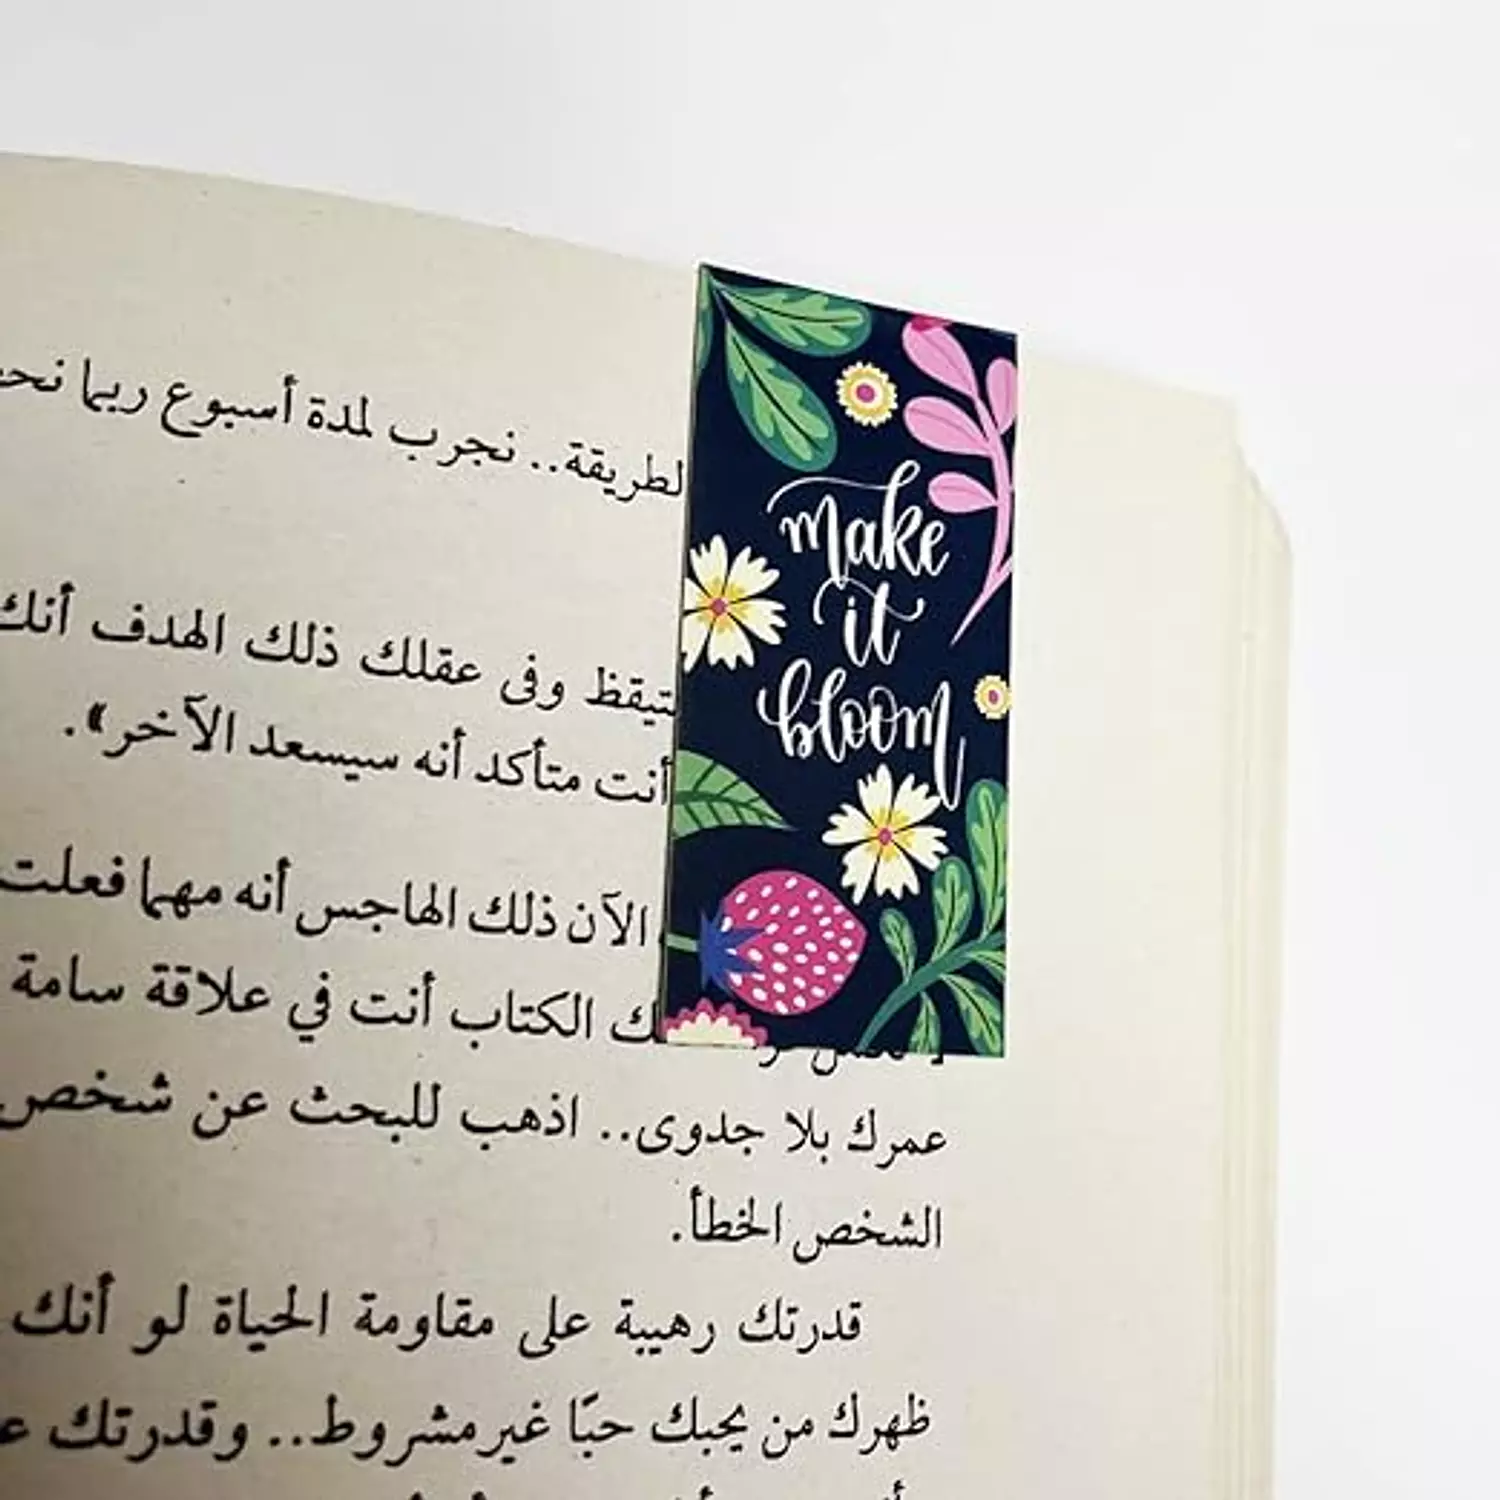 لطريقة.. نجرب لمدة أسبوع ربما
وفى عقلك ذلك الهدف أنك
أنت متأكد أنه سيسعد الآخر».
الآن ذلك الهاجس أنه مهما فعلت
الكتاب أنت في علاقة سامة
عمرك بلا جدوى.. اذهب للبحث عن شخص
الشخص الخطأ.
قدرتك رهيبة على مقاومة الحياة لو أنك
ظهرك من يحبك حبًا غير مشروط.. وقدرتك
make
it
bloom